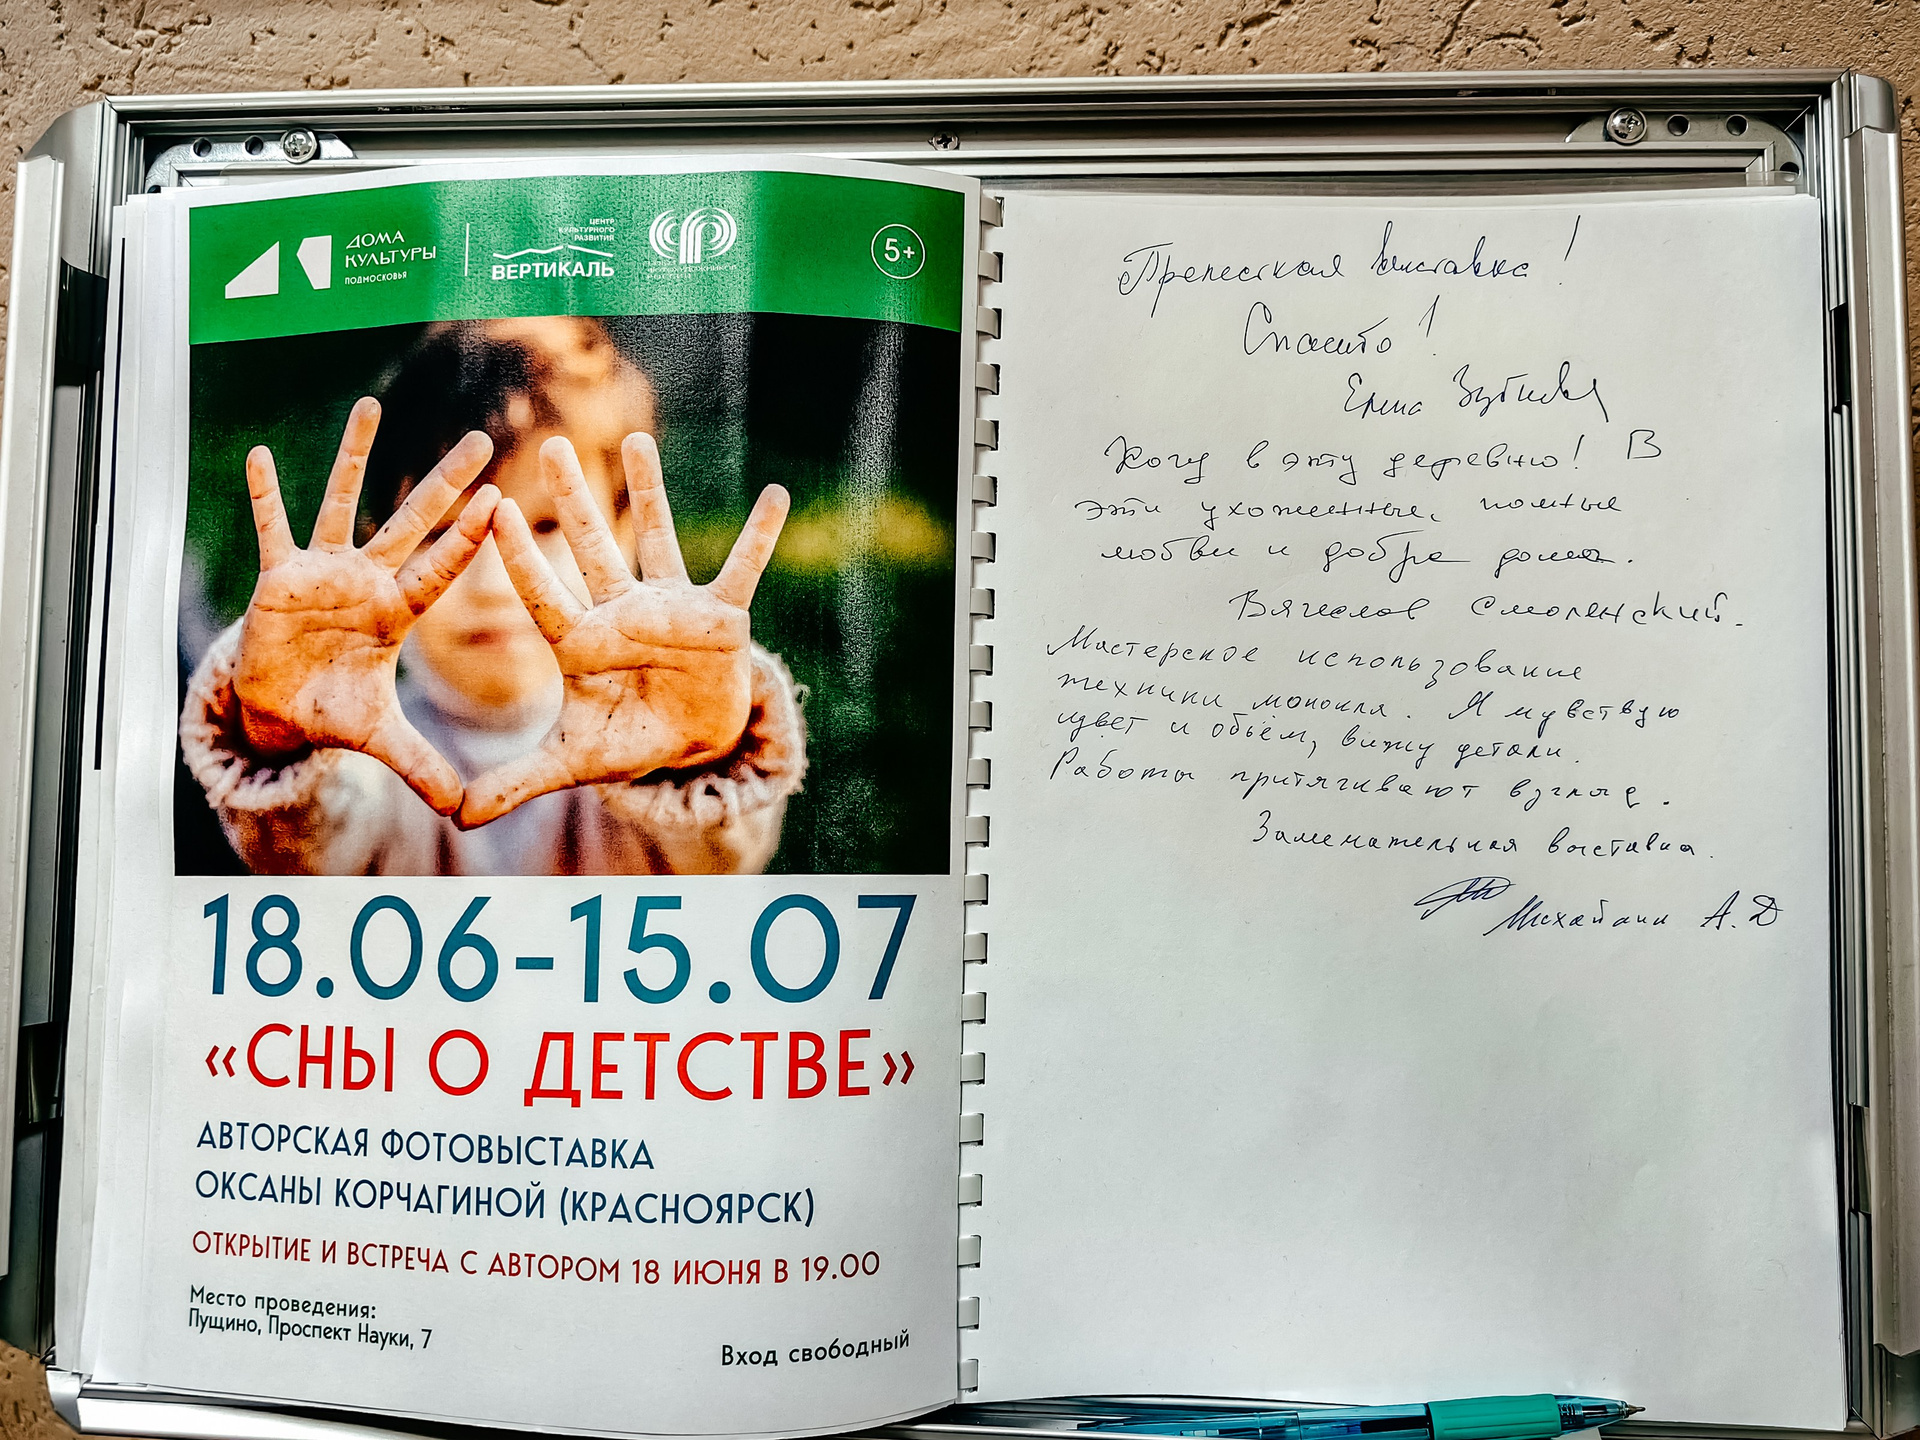 ДОМА
КУЛЬТУРЫ
ПОДМОСКОВЬЯ
ЦЕНТР
КУЛЬТУРНОГО
РАЗВИТИЯ
ВЕРТИКАЛЬ
5+
18.06-15.07
«СНЫ О ДЕТСТВЕ»
АВТОРСКАЯ ФОТОВЫСТАВКА
ОКСАНЫ КОРЧАГИНОЙ (КРАСНОЯРСК)
ОТКРЫТИЕ И ВСТРЕЧА С АВТОРОМ 18 ИЮНЯ В 19.00
Место проведения:
Пущино, Проспект Науки, 7
Вход свободный
Прелестная выставка!
Спасибо!
Елена
Хочу в эту деревню! В
эти ухоженные, полные
любви и добра дома.
Вячеслав Смоленский.
Мастерское использование
техники монокля. Я чувствую
цвет и объём, вижу детали.
Работы притягивают взгляд.
Замечательная выставка.
А.Д